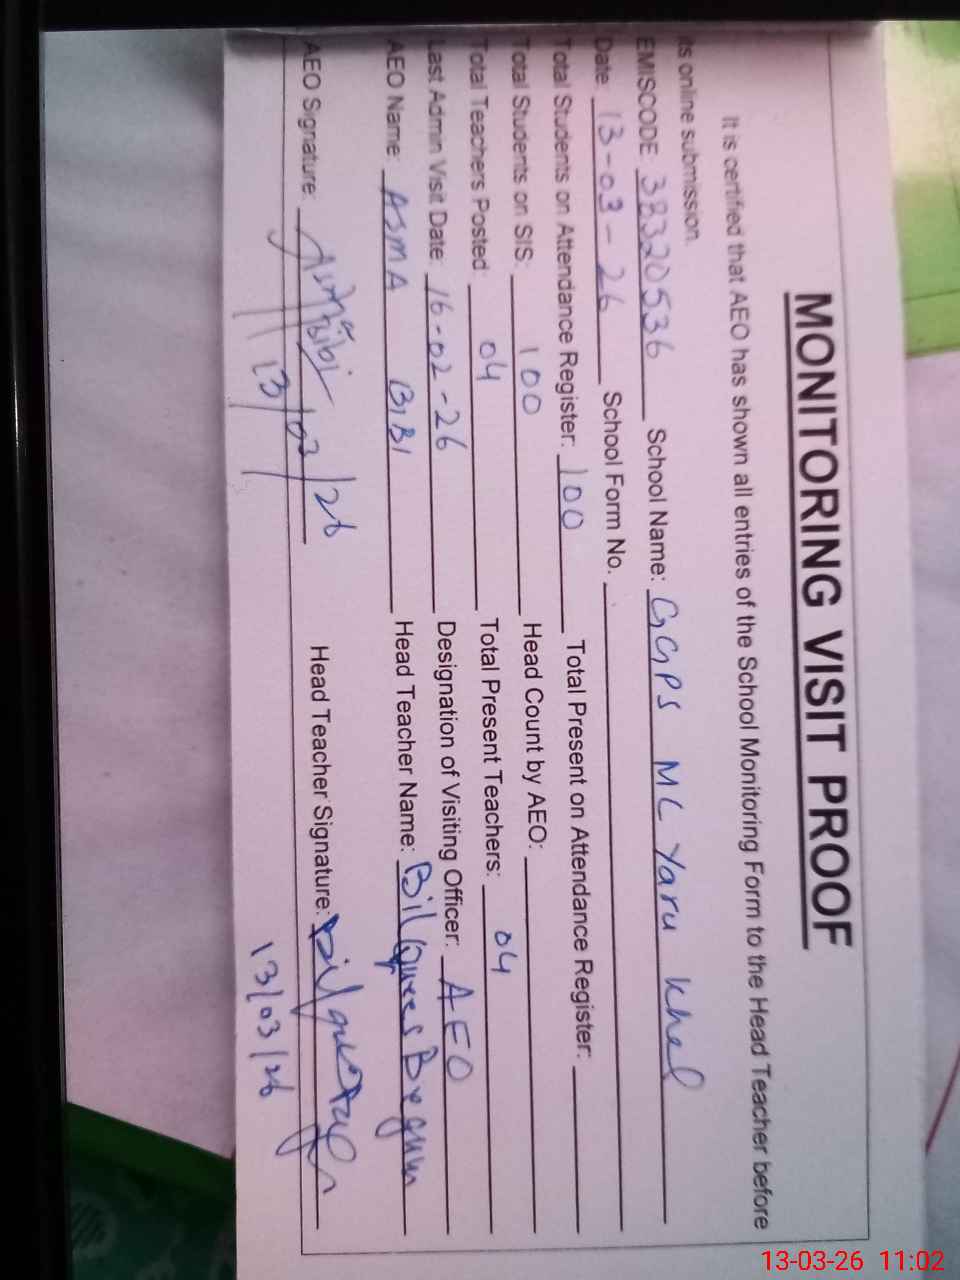 MONITORING VISIT PROOF
It is certified that AEO has shown all entries of the School Monitoring Form to the Head Teacher before
its online submission.
EMISCODE: 38320536 School Name: GGPS MC Yaru Khel
Date: 13-03-26 School Form No.
Total Students on Attendance Register: 100 Total Present on Attendance Register:
Total Students on SIS: 100 Head Count by AEO:
Total Teachers Posted: 04 Total Present Teachers: 04
Last Admin Visit Date: 16-02-26 Designation of Visiting Officer: AEO
AEO Name: ASMA BIBI Head Teacher Name: Bilquees Begum
AEO Signature: Asma bibi Head Teacher Signature:
13/03/26 13/03/26
13-03-26 11:02